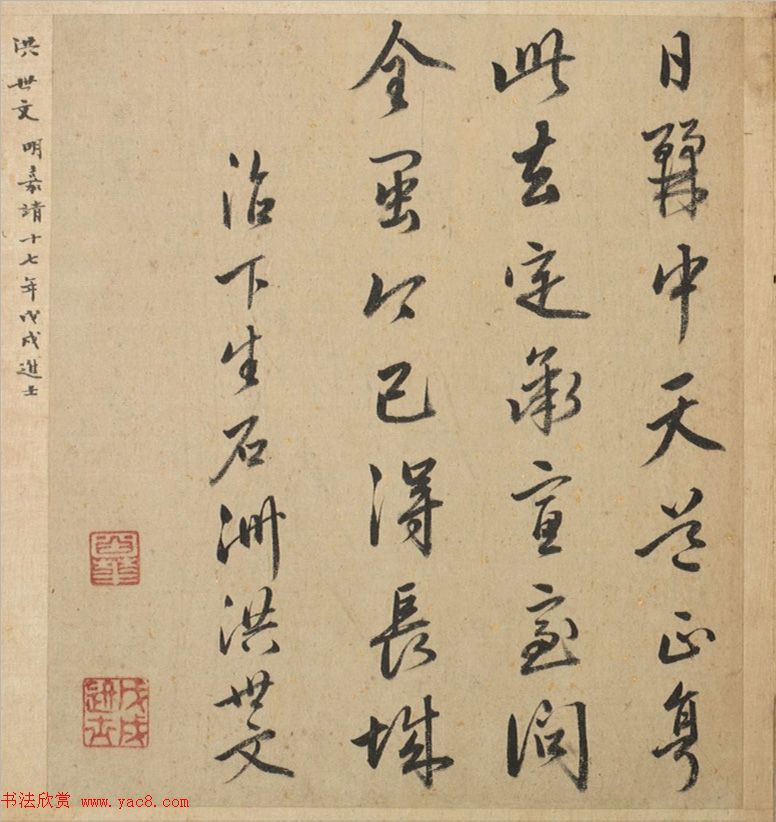 日麗中天道正亨
此去定承宣室問
全閩今已得長城
治下生石洲洪世文
戊戌進士
洪世文 明嘉靖十七年戊戌進士
书法欣赏 www.yac8.com